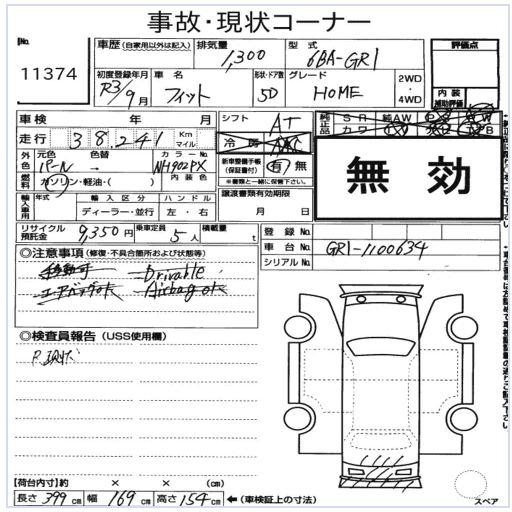 事故・現状コーナー
No. 11374
車歴 (自家用以外は記入) 排気量 1,300 型式 6BA-GR1 評価点
初度登録年月 R3/9月 車名 フィット 形状・ドア数 5D グレード HOME 2WD・4WD 内装 補助評価
車検 年 月 シフト AT
走行 38241 Km マイル
外色 元色 パール 色替 → カラーNo. NH902PX 新車整備手帳(保証書付) 有・無
※書類と一緒に保管下さい。
燃料 ガソリン・軽油・( ) 内装色 譲渡書類有効期限
輸入車用 年式 輸入区分 ディーラー・並行 ハンドル 左・右 月 日
無効
リサイクル預託金 9,350円 乗車定員 5人 積載量 t 登録No.
車台No. GR1-1100634
シリアルNo.
◎注意事項 (修復・不具合箇所および状態等)
移動可 Drivable
エアバックok Airbag ok
◎検査員報告 (USS使用欄)
【荷台内寸】約 × × (cm)
長さ 399cm 幅 169cm 高さ 154cm ←(車検証上の寸法)
スペア